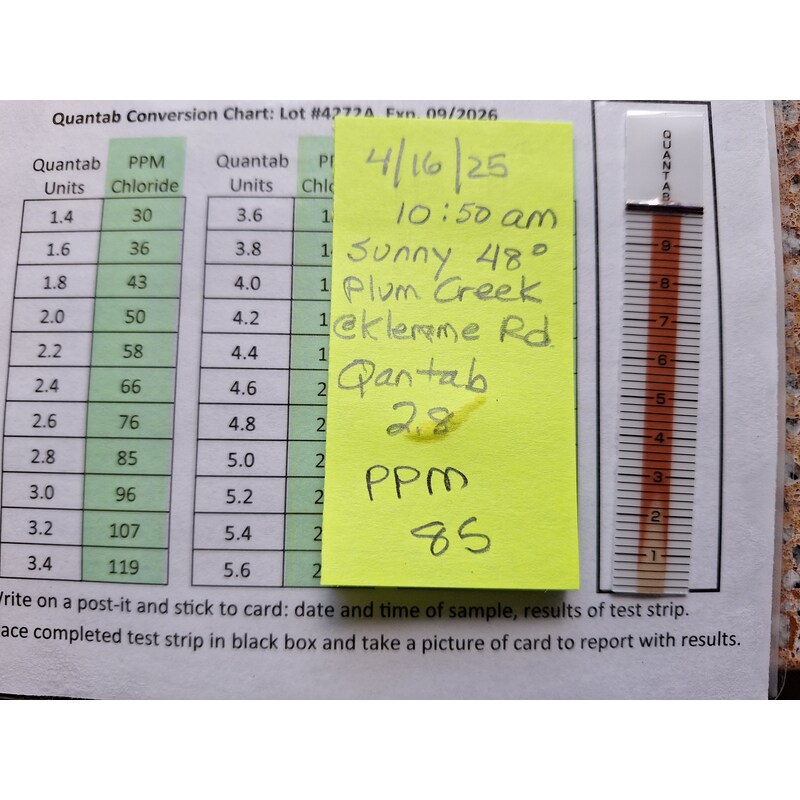 Quantab Conversion Chart: Lot #4272A Exp. 09/2026
Quantab Units PPM Chloride
1.4 30
1.6 36
1.8 43
2.0 50
2.2 58
2.4 66
2.6 76
2.8 85
3.0 96
3.2 107
3.4 119
Quantab Units
3.6
3.8
4.0
4.2
4.4
4.6
4.8
5.0
5.2
5.4
5.6
4/16/25
10:50 am
Sunny 48°
Plum Creek
@Klemme Rd
Qantab
2.8
PPM
85
QUANTAB
9
8
7
6
5
4
3
2
1
on a post-it and stick to card: date and time of sample, results of test strip.
completed test strip in black box and take a picture of card to report with results.